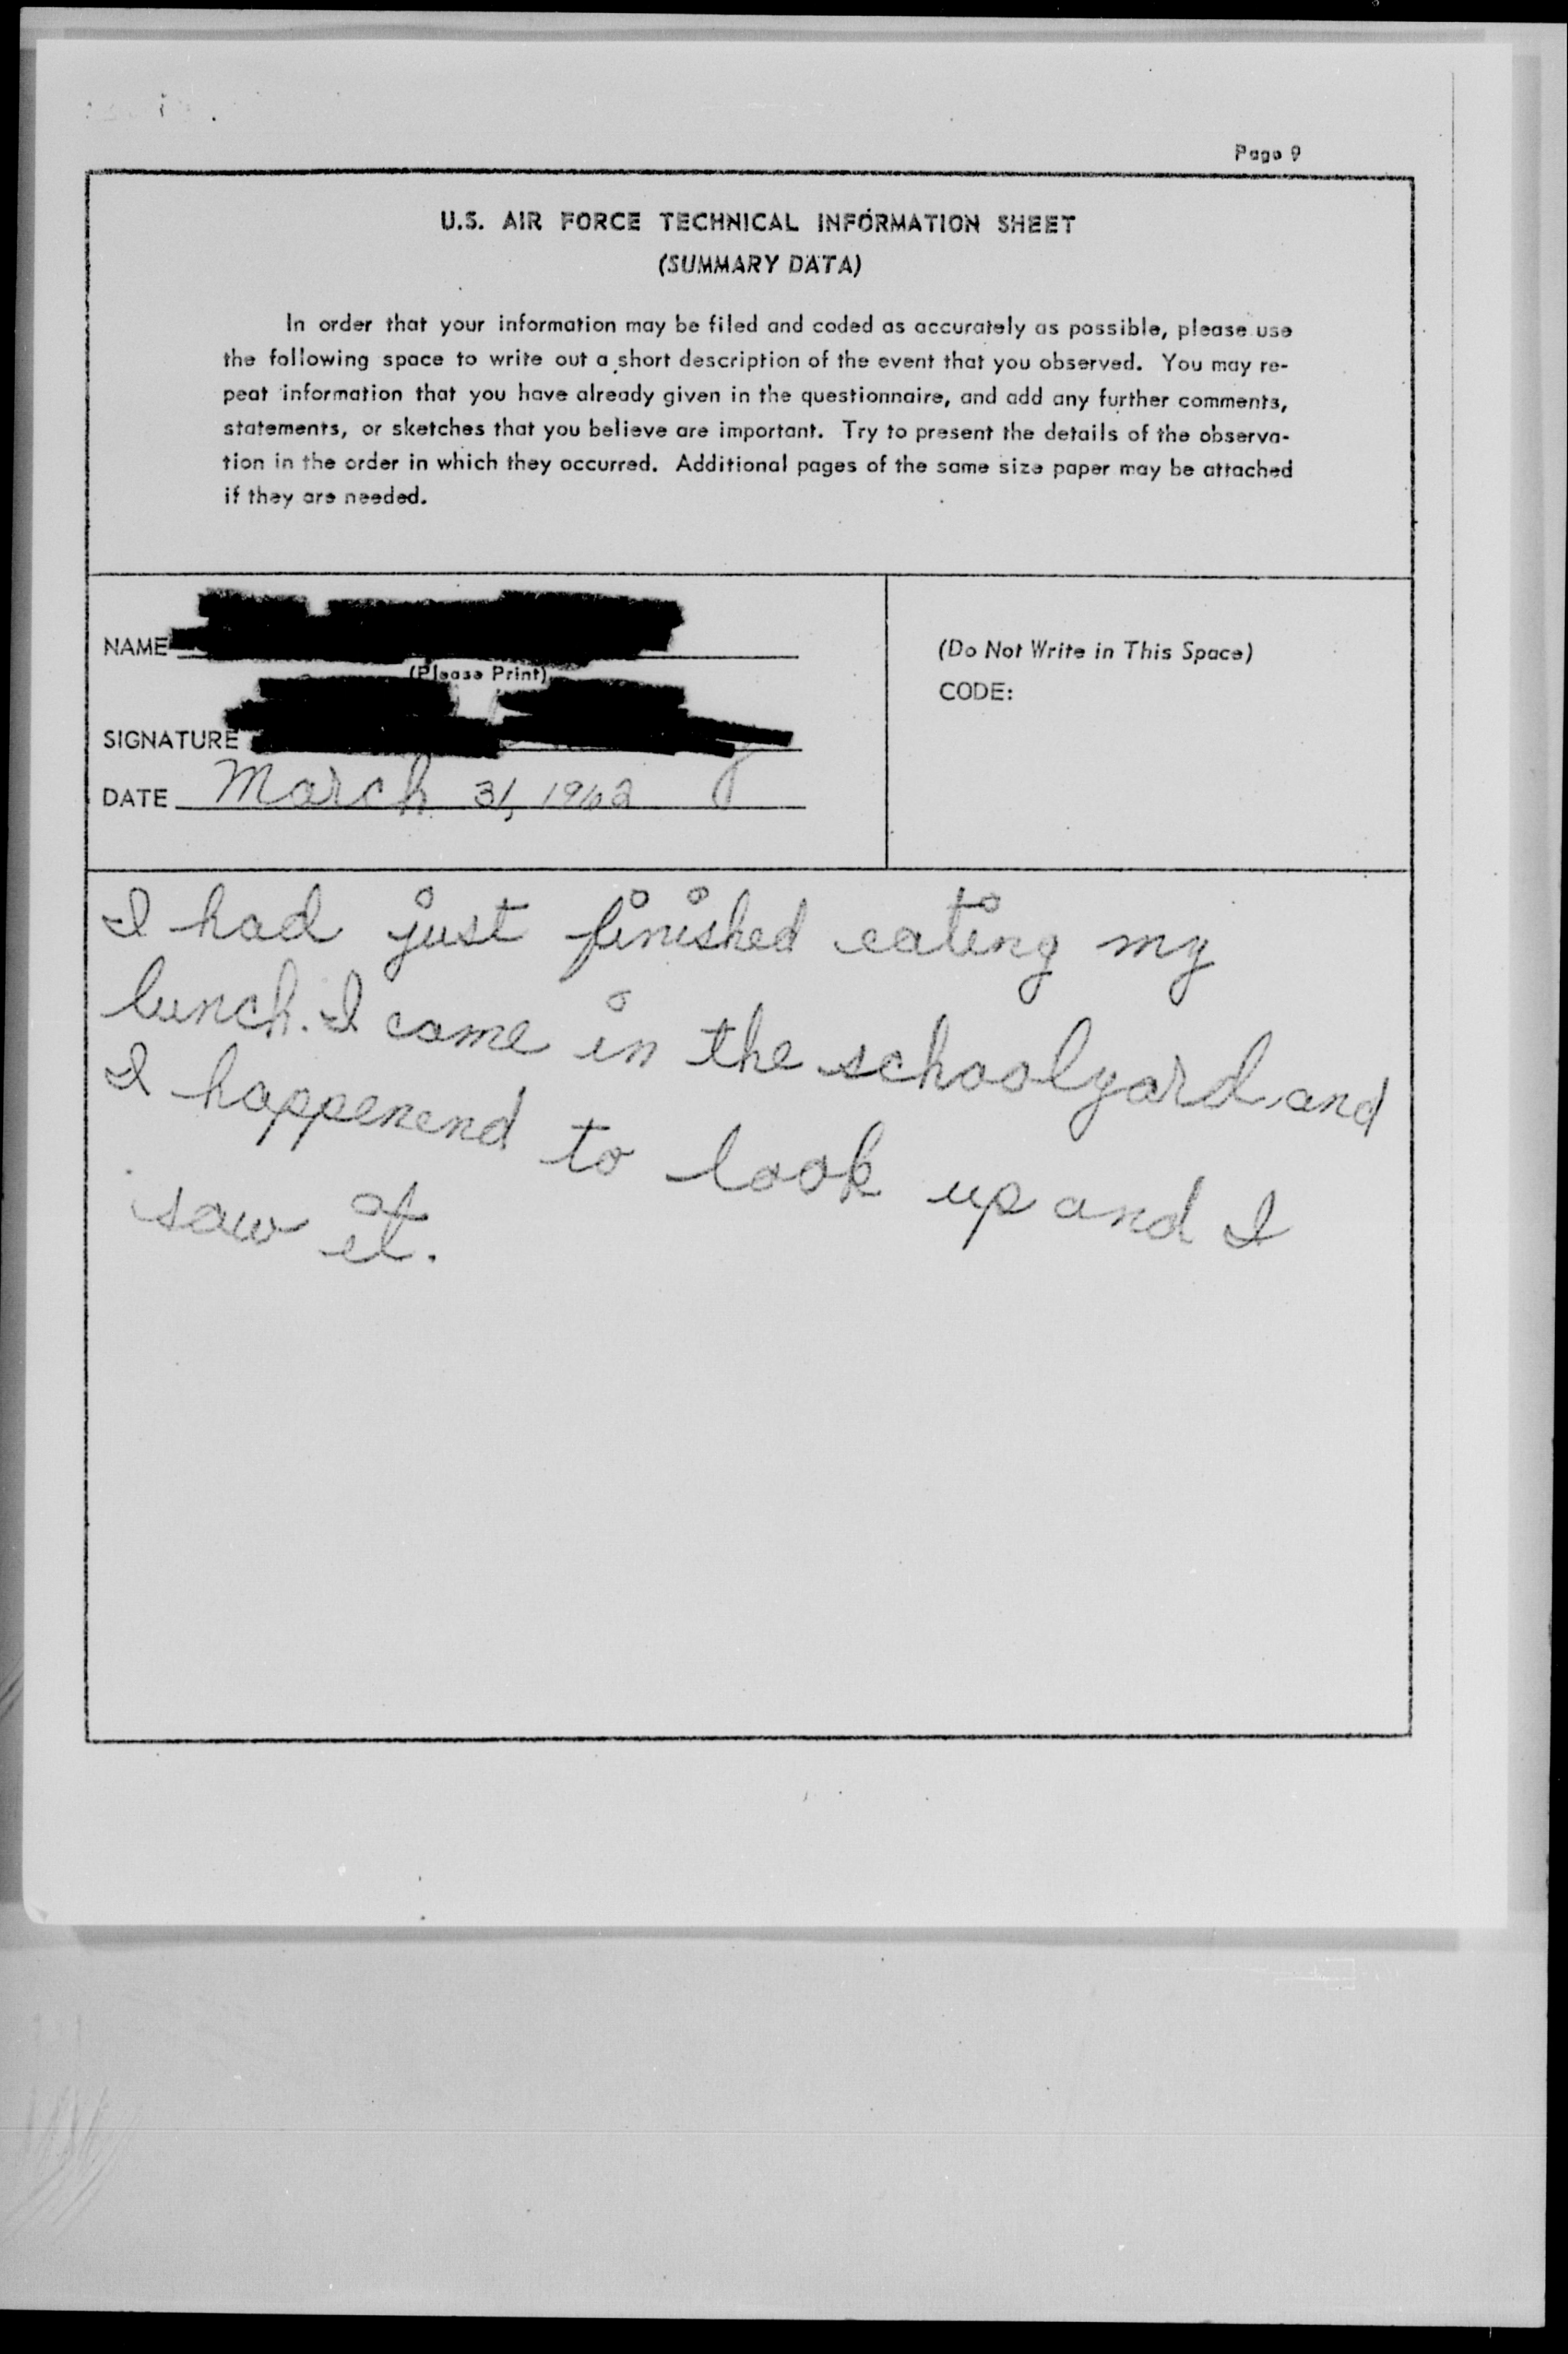 Page 9
U.S. AIR FORCE TECHNICAL INFORMATION SHEET
(SUMMARY DATA)
In order that your information may be filed and coded as accurately as possible, please use
the following space to write out a short description of the event that you observed. You may re-
peat information that you have already given in the questionnaire, and add any further comments,
statements, or sketches that you believe are important. Try to present the details of the observa-
tion in the order in which they occurred. Additional pages of the same size paper may be attached
if they are needed.
NAME
(Please Print)
SIGNATURE
DATE March 31, 1962
(Do Not Write in This Space)
CODE:
I had just finished eating my
lunch. I come in the schoolyard and
I happenend to look up and I
saw it.